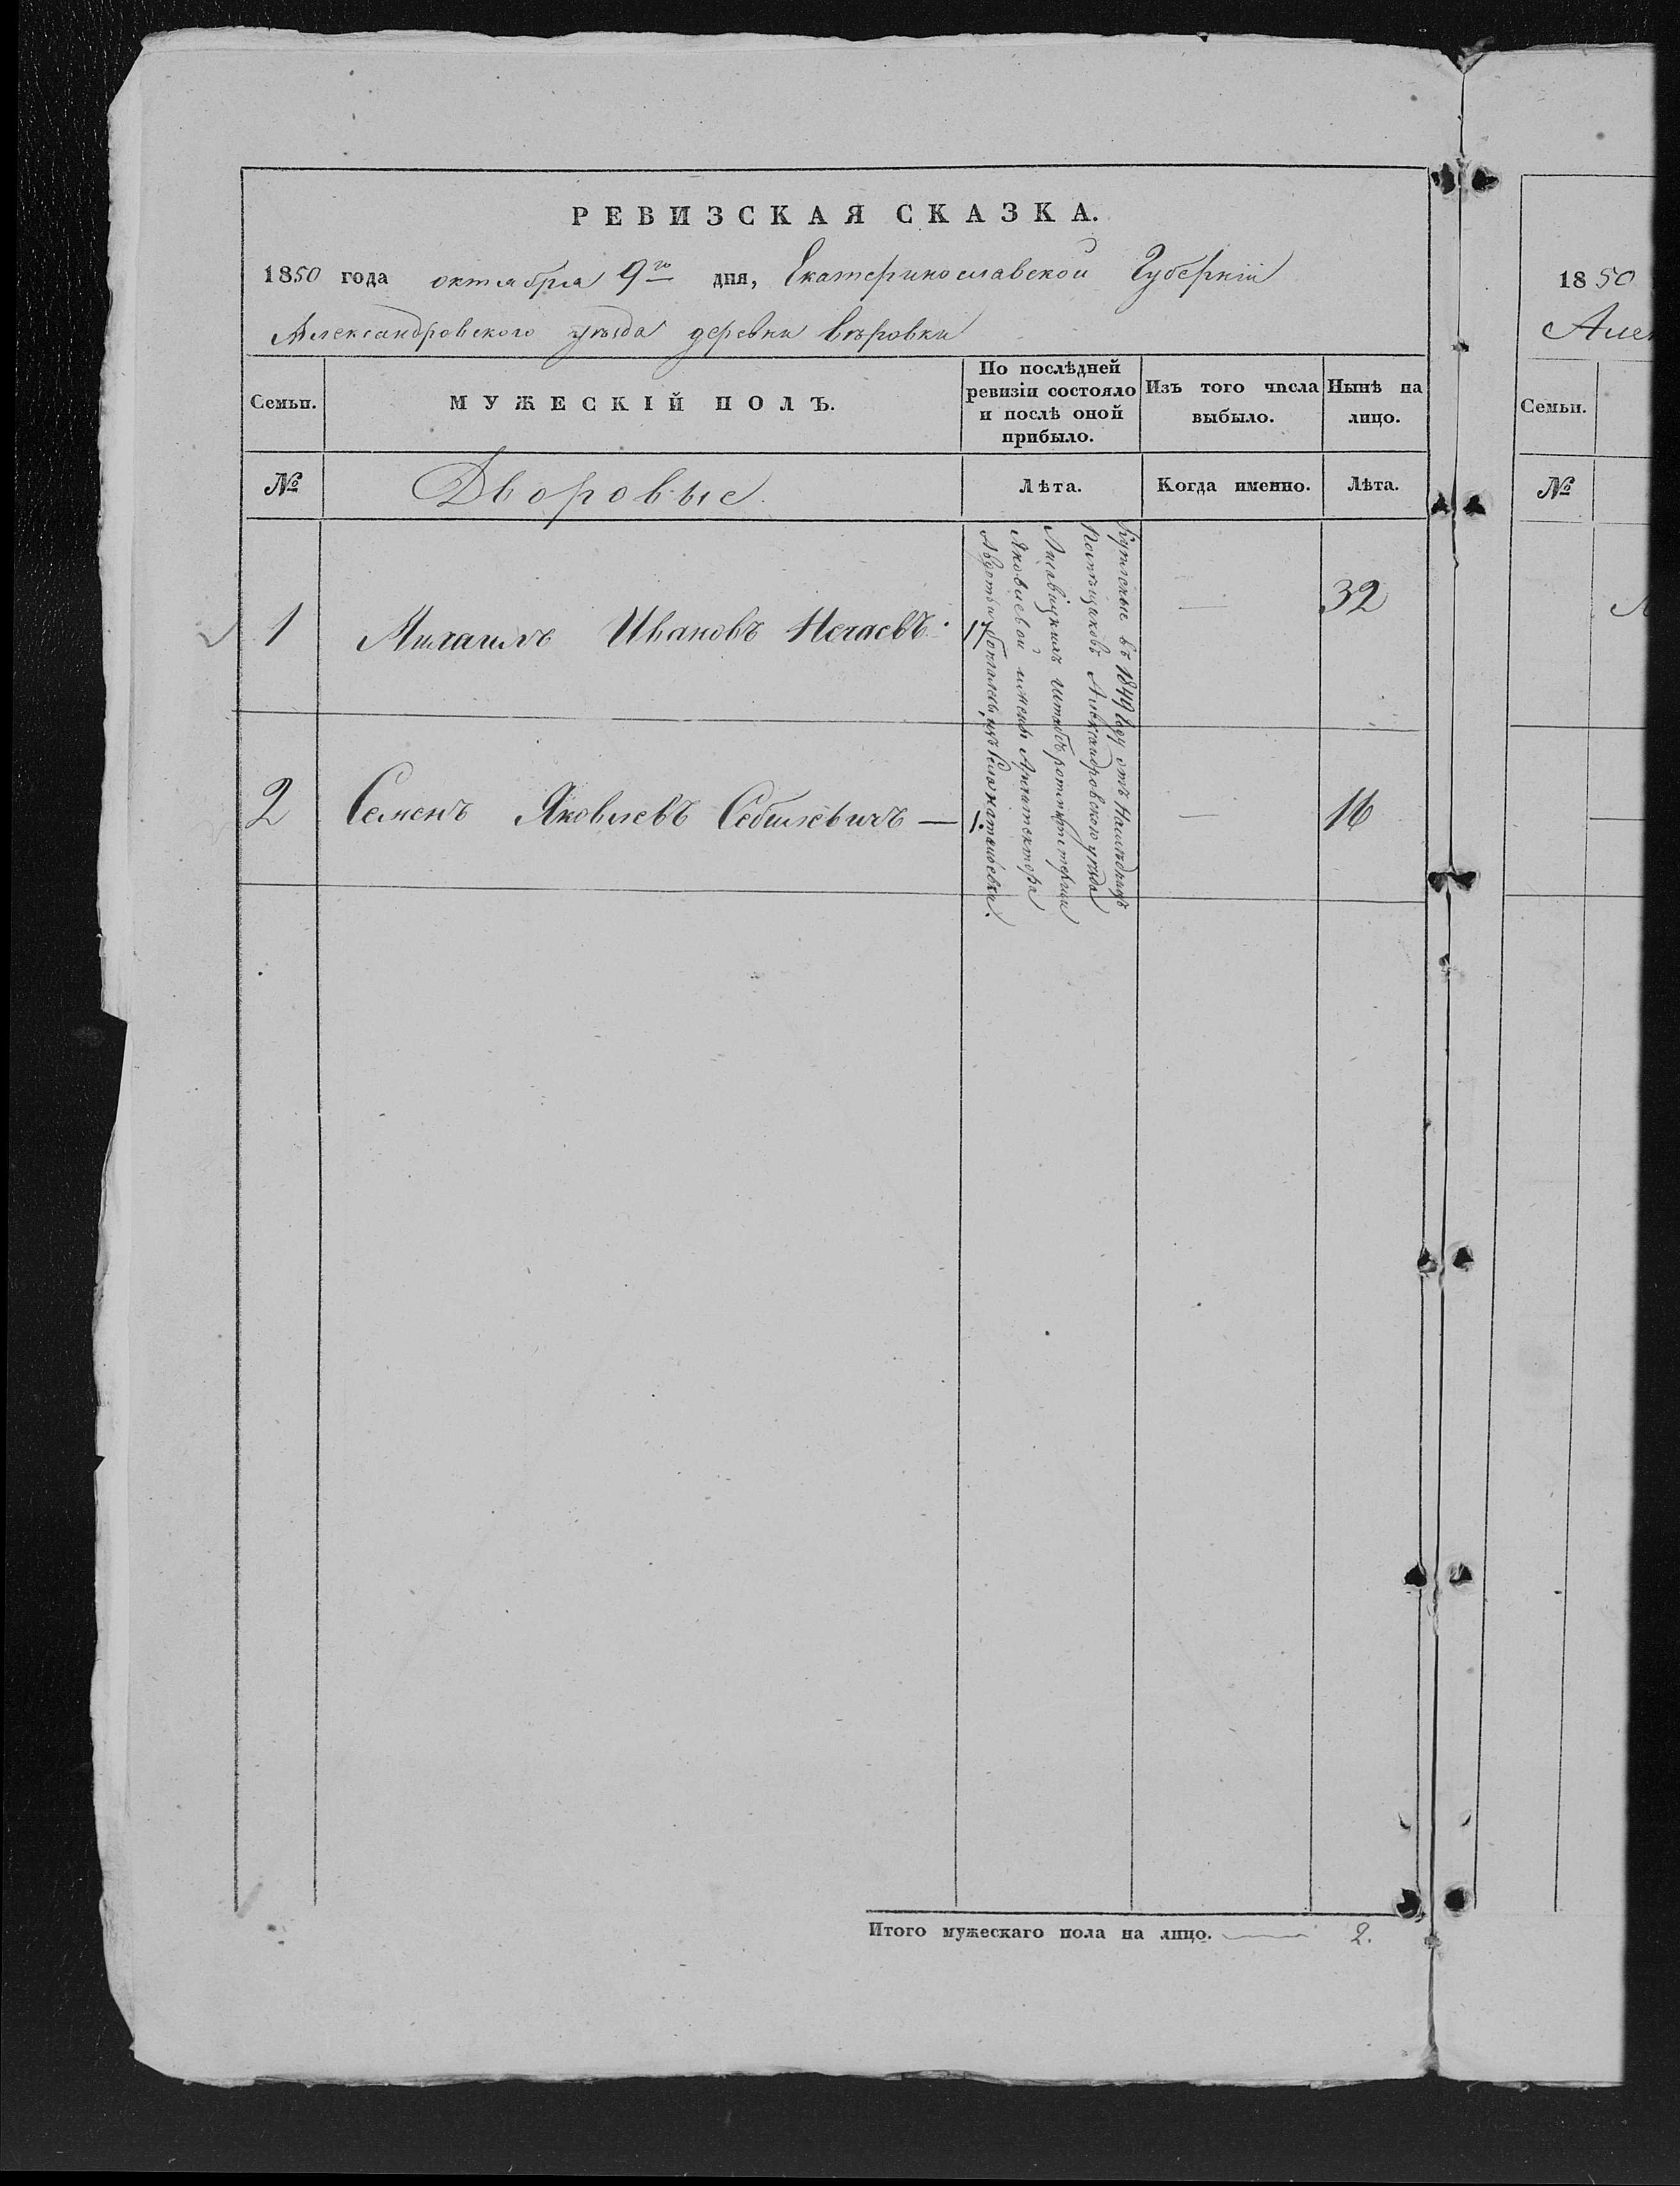 РЕВИЗСКАЯ СКАЗКА.
1850 года октября 9го дня, Екатеринославской Губерніи
Александровского уезда деревни Вѣровки
Семьи.
МУЖЕСКІЙ ПОЛЪ.
По послѣдней ревизіи состояло и послѣ оной прибыло.
Изъ того числа выбыло.
Нынѣ на лицо.
№
Дворовые.
Лѣта.
Когда именно.
Лѣта.
1 Михаилъ Ивановъ Нечаевъ 17 — 32
2 Семенъ Яковлевъ — 1. — 16
Купленые въ 1849 году отъ
Помѣщиковъ Александровского уѣзда
штабъ
Яковлевой и Архитектора
Авдотьи изъ Села
Итого мужескаго пола на лицо. 2.
1850
Семьи.
№